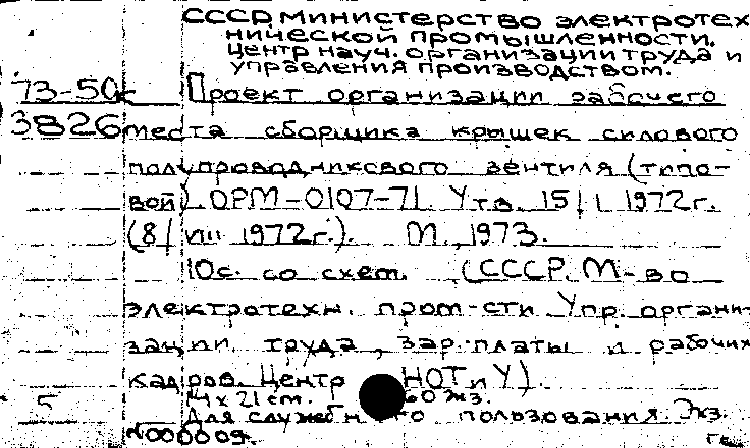 СССР. Министерство электротех
нической промышленности.
Центр науч. организации труда и
управления производством.
73-50к Проект организации рабочего
3826 места сборщика крышек силового
полупроводникового вентиля (типо-
вой). ОРМ-0107-71. Утв. 15/I 1972г.
(8/VIII 1972г.). М., 1973.
10с. со схем. (СССР. М-во
электротехн. пром-сти Упр. органи-
зации труда, зар. платы и рабочих
кадров. Центр НОТ и У).
5 14 х 21 см. 60 экз.
Для служебного пользования. Экз.
№000009